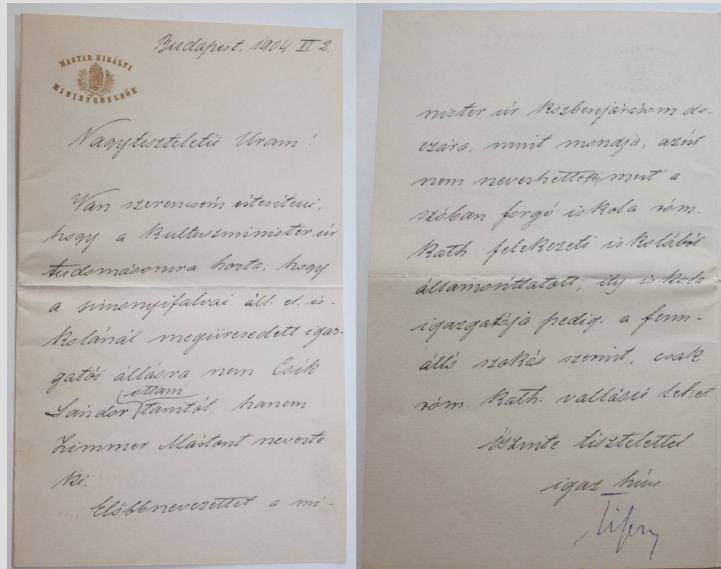 Budapest, 1904 II 2.
MAGYAR KIRÁLYI
MINISTERELNÖK
Nagytiszteletű Uram!
Van szerencsém értesíteni,
hogy a Kultuszminister úr
tudomásomra hozta, hogy
a simonyifalvai áll. el. is-
kolánál megüresedett igaz-
gatói állásra nem Csík
ottani
Sándor tanítót, hanem
Zimmer Mártont nevezte
ki.
Előbbnevezettet a mi-
niszter úr közbenjárásom da-
czára, mint mondja, azért
nem nevezhette ki, mert a
szóban forgó iskola róm.
Kath. felekezeti iskolából
államosíttatott, ily iskola
igazgatója pedig, a fenn-
álló szokás szerint, csak
róm. Kath. vallású lehet.
Őszinte tisztelettel
igaz híve
Tisza